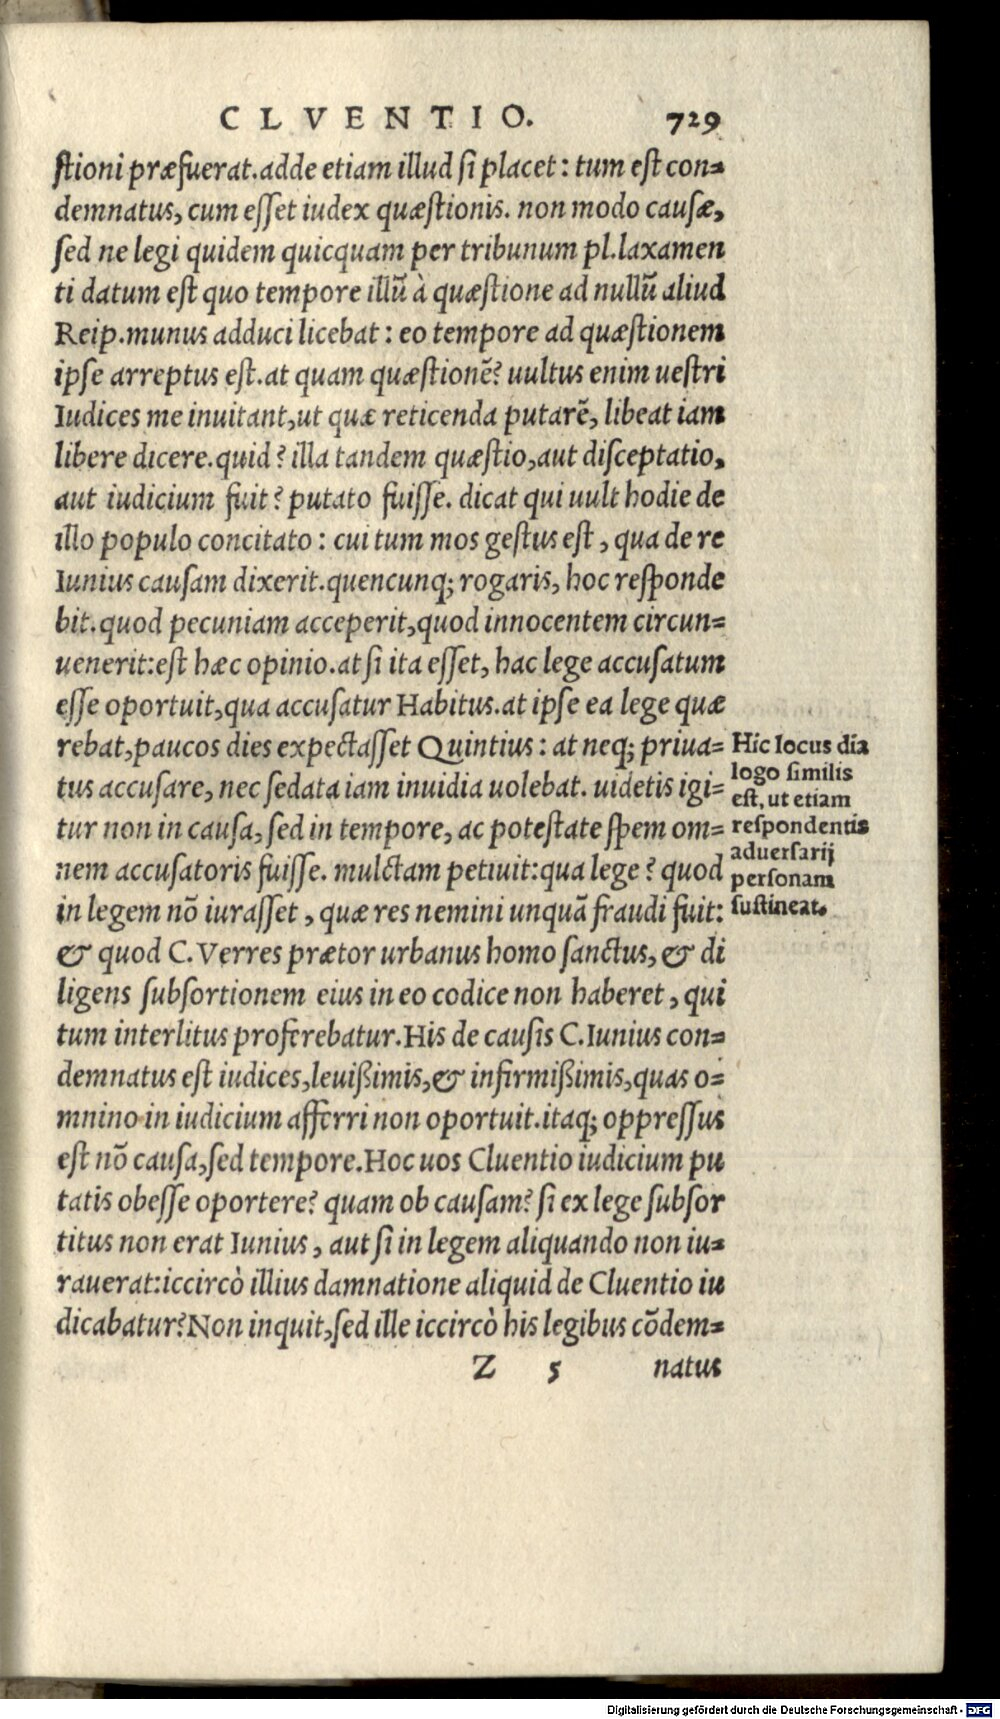 CLVENTIO. 729
ſtioni præfuerat. adde etiam illud ſi placet: tum eſt con=
demnatus, cum eſſet iudex quæſtionis. non modo cauſæ,
ſed ne legi quidem quicquam per tribunum pl. laxamen
ti datum eſt quo tempore illũ à quæſtione ad nullũ aliud
Reip. munus adduci licebat: eo tempore ad quæſtionem
ipſe arreptus eſt. at quam quæſtionẽ? uultus enim ueſtri
Iudices me inuitant, ut quæ reticenda putarẽ, libeat iam
libere dicere. quid? illa tandem quæſtio, aut diſceptatio,
aut iudicium fuit? putato fuiſſe. dicat qui uult hodie de
illo populo concitato: cui tum mos geſtus eſt, qua de re
Iunius cauſam dixerit. quencunq; rogaris, hoc reſponde
bit. quod pecuniam acceperit, quod innocentem circun=
uenerit: eſt hæc opinio. at ſi ita eſſet, hac lege accuſatum
eſſe oportuit, qua accuſatur Habitus. at ipſe ea lege quæ
rebat, paucos dies expectaſſet Quintius: at neq; priua=
tus accuſare, nec ſedata iam inuidia uolebat. uidetis igi=
tur non in cauſa, ſed in tempore, ac poteſtate ſpem om=
nem accuſatoris fuiſſe. mulctam petiuit: qua lege? quod
in legem nõ iuraſſet, quæ res nemini unquã fraudi fuit:
& quod C. Verres prætor urbanus homo ſanctus, & di
ligens ſubſortionem eius in eo codice non haberet, qui
tum interlitus proferebatur. His de cauſis C. Iunius con=
demnatus eſt iudices, leuißimis, & infirmißimis, quas o=
mnino in iudicium afferri non oportuit. itaq; oppreſſus
eſt nõ cauſa, ſed tempore. Hoc uos Cluentio iudicium pu
tatis obeſſe oportere? quam ob cauſam? ſi ex lege ſubſor
titus non erat Iunius, aut ſi in legem aliquando non iu=
rauerat: iccircò illius damnatione aliquid de Cluentio iu
dicabatur? Non inquit, ſed ille iccircò his legibus cõdem=
Z 5 natus
Hic locus dia
logo ſimilis
eſt, ut etiam
reſpondentis
aduerſarij
perſonam
ſuſtineat.
Digitalisierung gefördert durch die Deutsche Forschungsgemeinschaft - DFG